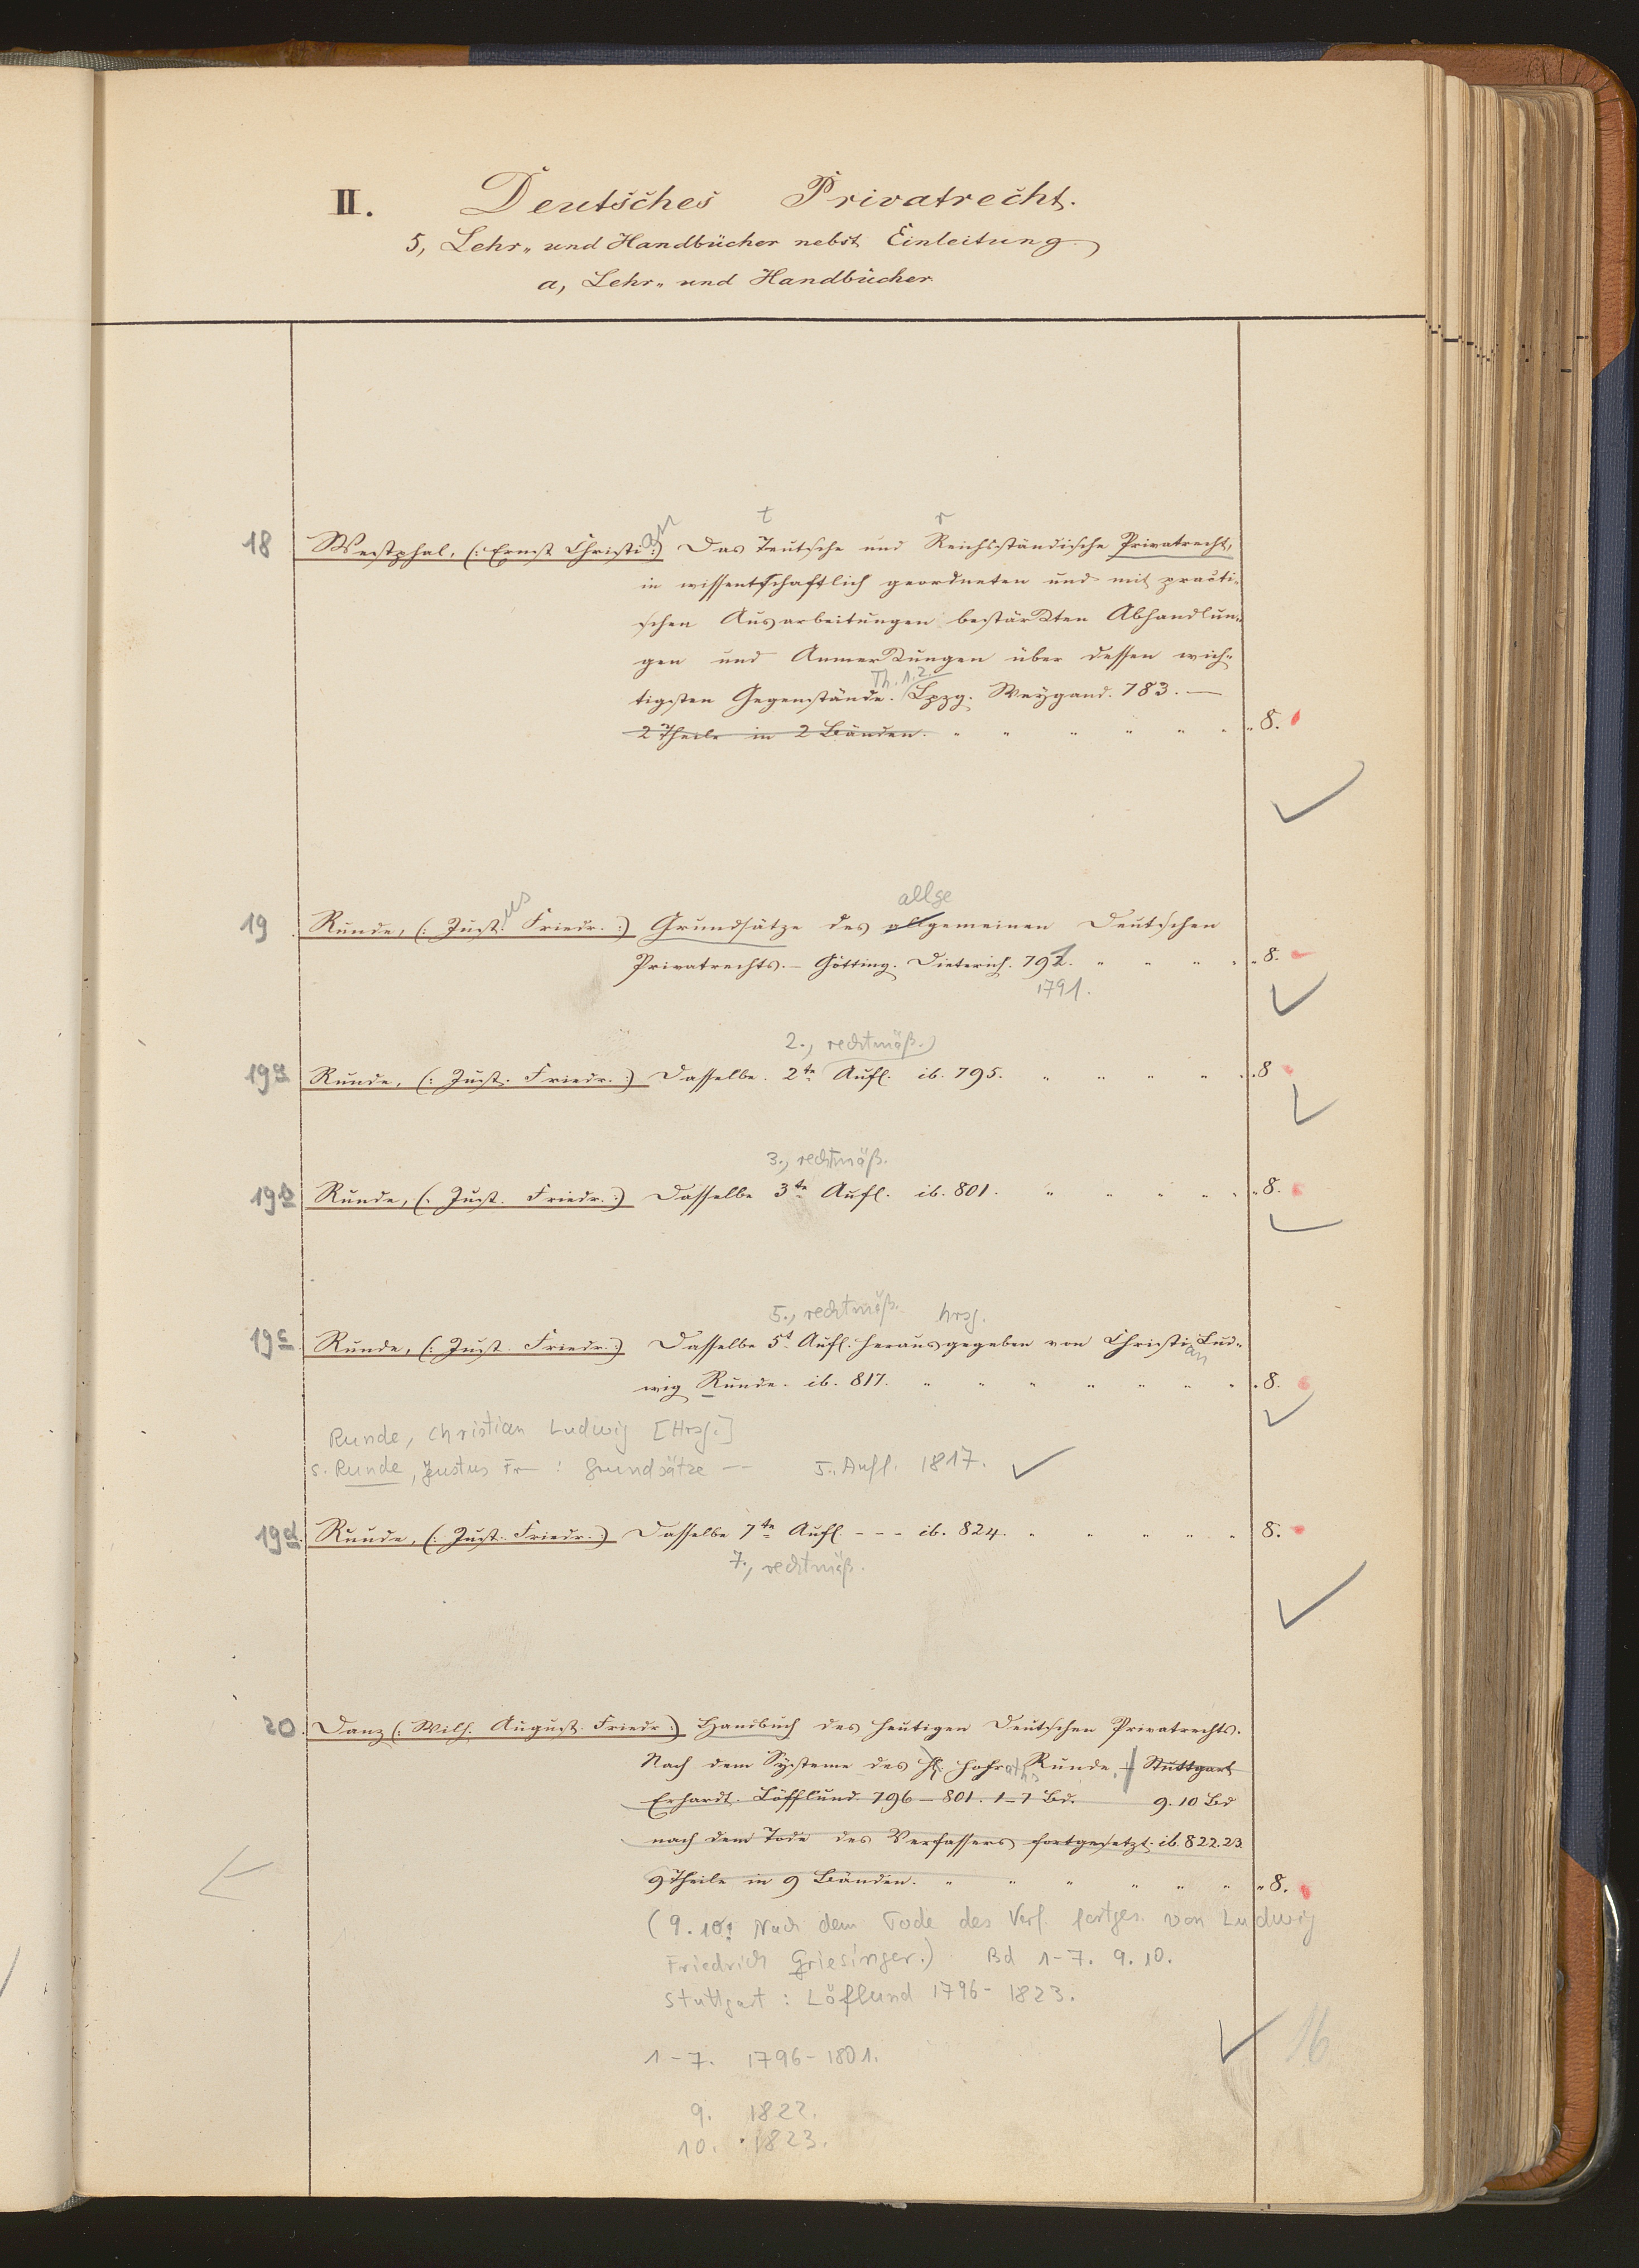 II. Deutsches Privatrecht.
5, Lehr- und Handbücher nebst Einleitung
a, Lehr- und Handbücher
t r
18 Westphal, (: Ernst Christian :) Das Teutsche und Reichsständische Privatrecht,
in wissentschaftlich geordneten und mit practi-
schen Ausarbeitungen bestärkten Abhandlun-
gen und Anmerkungen über dessen wich-
Th. 1.2.
tigsten Gegenstände. Lpzg. Weygand. 783. —
2 Theile in 2 Bänden. " " " " " " 8.
allge
19 Runde, (: Justus Friedr. :) Grundsätze des allgemeinen Deutschen
Privatrechts. – Götting. Dieterich. 791. " " " " " 8.
1791.
2., rechtmäß.
19a Runde, (: Just. Friedr. :) Dasselbe. 2te Aufl. ib. 795. " " " " " 8
3., rechtmäß.
19b Runde, (: Just. Friedr. :) Dasselbe 3te Aufl. ib. 801. " " " " " 8.
5., rechtmäß. hrsg.
19c Runde, (: Just. Friedr. :) Dasselbe 5t Aufl. herausgegeben von Christian Lud-
wig Runde. ib. 817. " " " " " " " 8.
Runde, Christian Ludwig [Hrsg.]
s. Runde, Justus Fr — : Grundsätze — 5. Aufl. 1817.
19d. Runde, (: Just. Friedr. :) Dasselbe 7te Aufl. - - - ib. 824. " " " " " 8.
7., rechtmäß.
20. Danz (: Wilh. August Friedr :) Handbuch des heutigen Deutschen Privatrechts.
Nach dem Systeme des H. Hofraths Runde. – Stuttgart
Erhardt. Löfflund. 796 – 801. 1–7 Bd. 9. 10 Bd
nach dem Tode des Verfassers fortgesetzt. ib. 822. 23.
9 Theile in 9 Bänden. " " " " " " 8.
(9. 10: Nach dem Tode des Verf. fortges. von Ludwig
Friedrich Griesinger.) Bd 1-7. 9. 10.
Stuttgart : Löflund 1796- 1823.
1-7. 1796-1801. 16
9. 1822.
10. 1823.